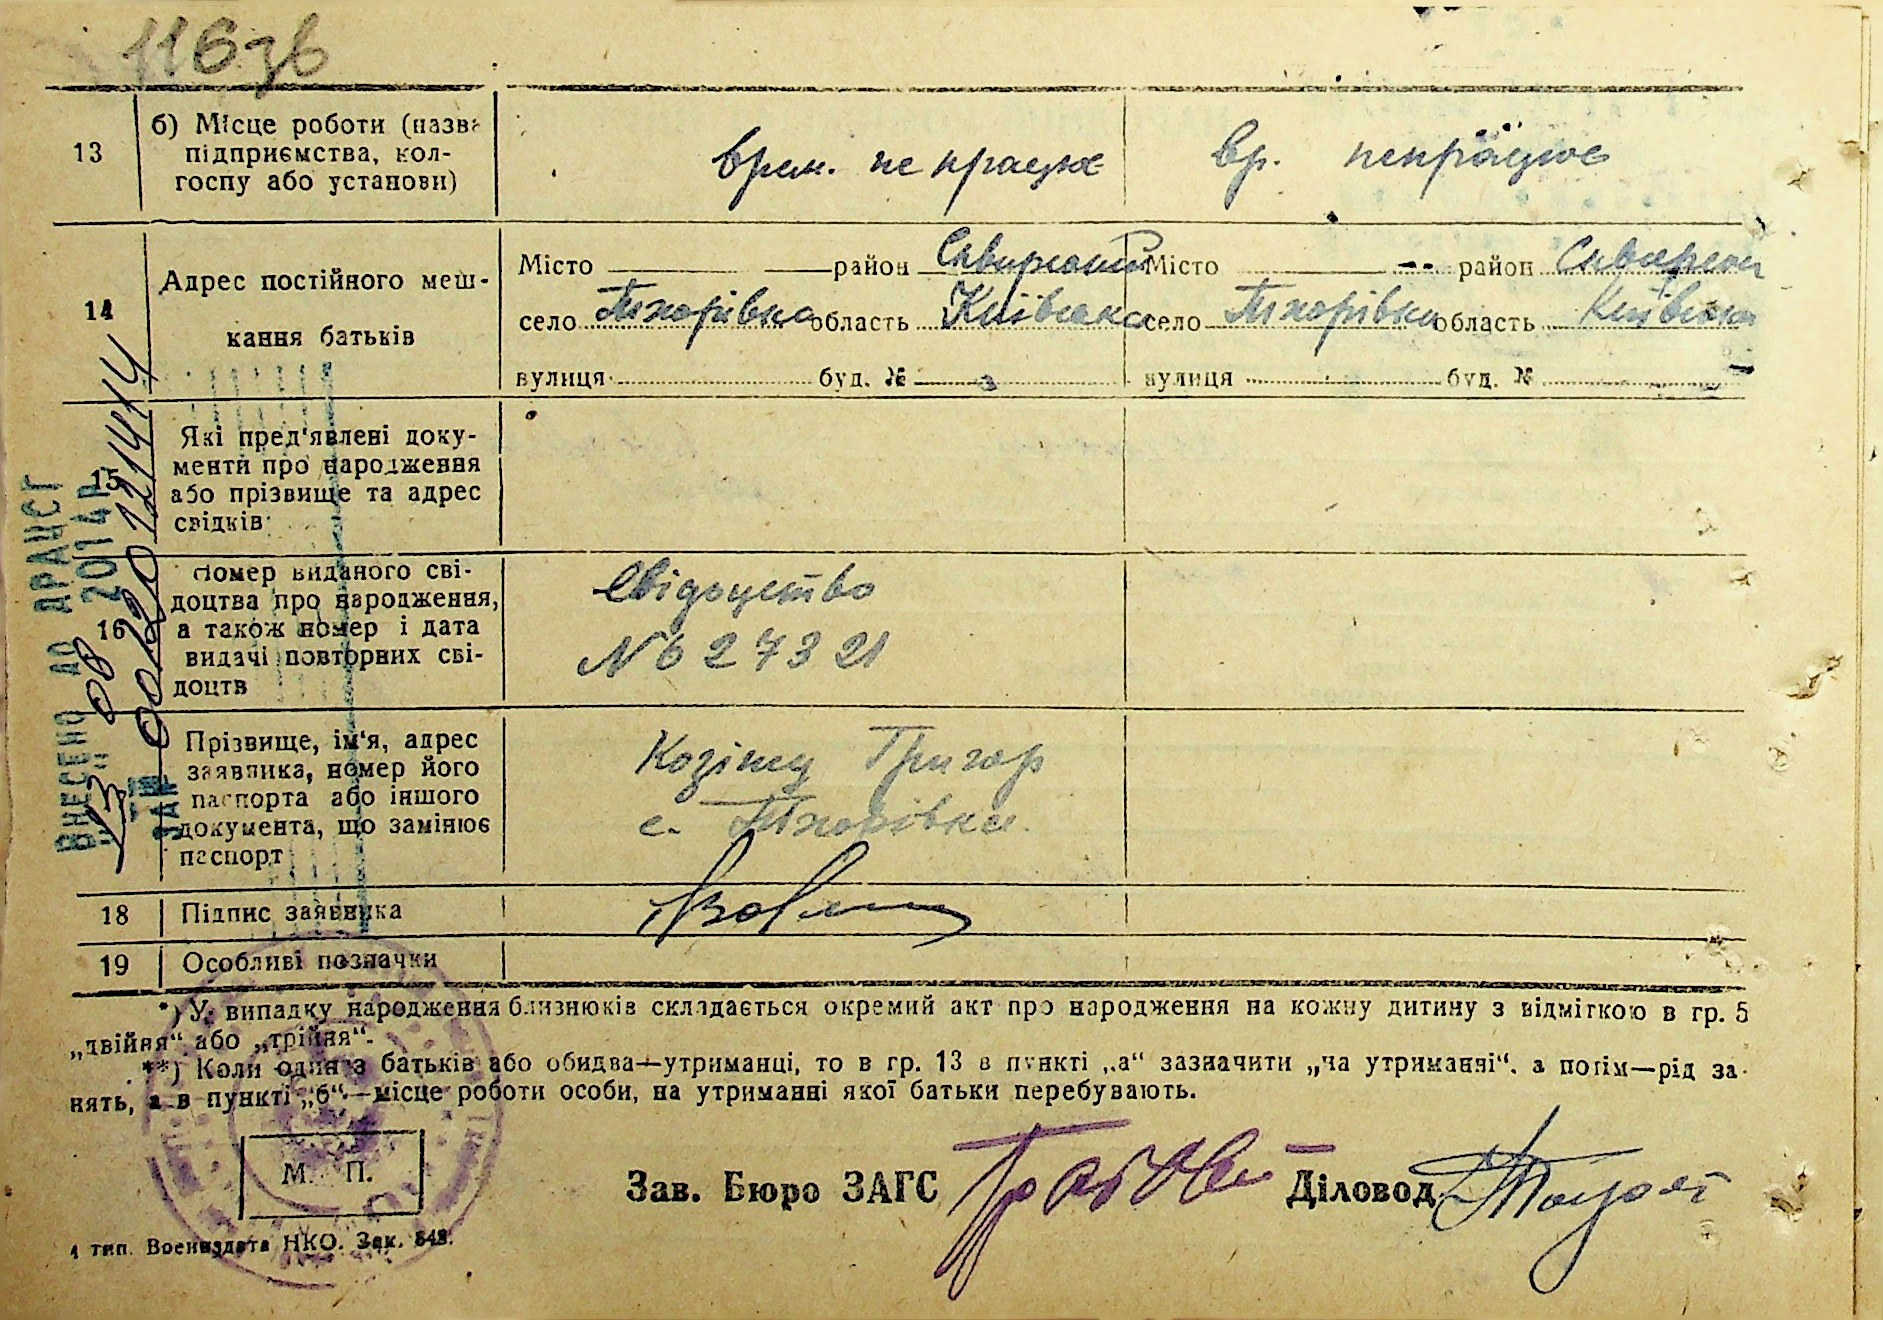 116 зв
13
б) Місце роботи (назва
підприємства, кол-
госпу або установи)
врем. не працює
вр. непрацює
14
Адрес постійного меш-
кання батьків
Місто район Сквирський
село Тхорівка область Київська
вулиця буд. №
Місто район Сквирськ
село Тхорівка область Київська
вулиця буд. №
15
Які пред'явлені доку-
менти про народження
або прізвище та адрес
свідків
16
Номер виданого сві-
доцтва про народження,
а також номер і дата
видачі повторних сві-
доцтв
Свідоцтво
№ 627321
Прізвище, ім'я, адрес
заявника, номер його
паспорта або іншого
документа, що замінює
паспорт
Григор
с. Тхорівка
18
Підпис заявника
19
Особливі позначки
*) У випадку народження близнюків складається окремий акт про народження на кожну дитину з відміткою в гр. 5
„двійня“ або „трійня“.
**) Коли один з батьків або обидва—утриманці, то в гр. 13 в пункті „а“ зазначити „на утриманні“, а потім—рід за-
нять, а в пункті „б“—місце роботи особи, на утриманні якої батьки перебувають.
М. П.
Зав. Бюро ЗАГС
Діловод
1 тип. Воениздата НКО. Зак. 548.
ВНЕСЕНО ДО ДРАЦСГ
"13" 08 2014 р.